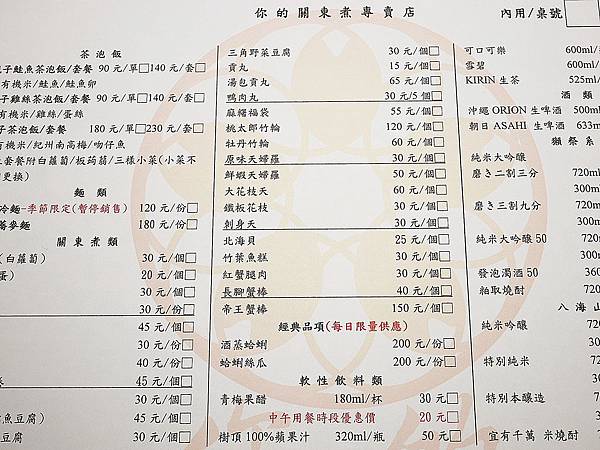 你的關東煮專賣店
內用/桌號
茶泡飯
子鮭魚茶泡飯/套餐 90 元/單□140 元/套□
有機米/鮭魚/鮭魚卵
子雞絲茶泡飯/套餐 90 元/單□140 元/套□
有機米/雞絲/蛋絲
子茶泡飯/套餐 180 元/單□230 元/套□
有機米/紀州南高梅/吻仔魚
套餐附白蘿蔔/板蒟蒻/三樣小菜(小菜不
更換)
麵 類
冷麵-季節限定(暫停銷售) 120 元/份□
蕎麥麵 180 元/份□
關東煮類
(白蘿蔔) 30 元/個□
蛋) 20 元/個□
30 元/個□
30 元/個□
45 元/個□
30 元/份□
40 元/份□
45 元/個□
30 元/個□
魚豆腐) 45 元/個□
豆腐 30 元/個□
三角野菜豆腐 30 元/個□
貢丸 15 元/個□
湯包貢丸 65 元/個□
鴨肉丸 30 元/5 個□
麻糬福袋 55 元/個□
桃太郎竹輪 120 元/個□
牡丹竹輪 60 元/個□
原味天婦羅 30 元/個□
鮮蝦天婦羅 50 元/個□
大花枝天 60 元/個□
鐵板花枝 30 元/個□
刺身天 30 元/個□
北海貝 25 元/個□
竹葉魚糕 30 元/個□
紅蟹腿肉 30 元/個□
長腳蟹棒 40 元/個□
帝王蟹棒 150 元/個□
經典品項(每日限量供應)
酒蒸蛤蜊 200 元/份□
蛤蜊絲瓜 200 元/份□
軟性飲料類
青梅果醋 180ml/杯 30 元□
中午用餐時段優惠價 20 元□
樹頂 100%蘋果汁 320ml/瓶 50 元□
可口可樂 600ml/
雪碧 600ml/
KIRIN 生茶 525ml/
酒 類
沖繩 ORION 生啤酒 500ml/
朝日 ASAHI 生啤酒 633m
獺祭系
純米大吟釀
磨き二割三分 720ml
300m
磨き三割九分 720m
300m
純米大吟釀 50 720
300m
發泡濁酒 50 360
粕取燒酎 720
八海山
純米吟釀 720
300
特別純米 720
300
特別本釀造 720
300
宜有千萬 米燒酎 72